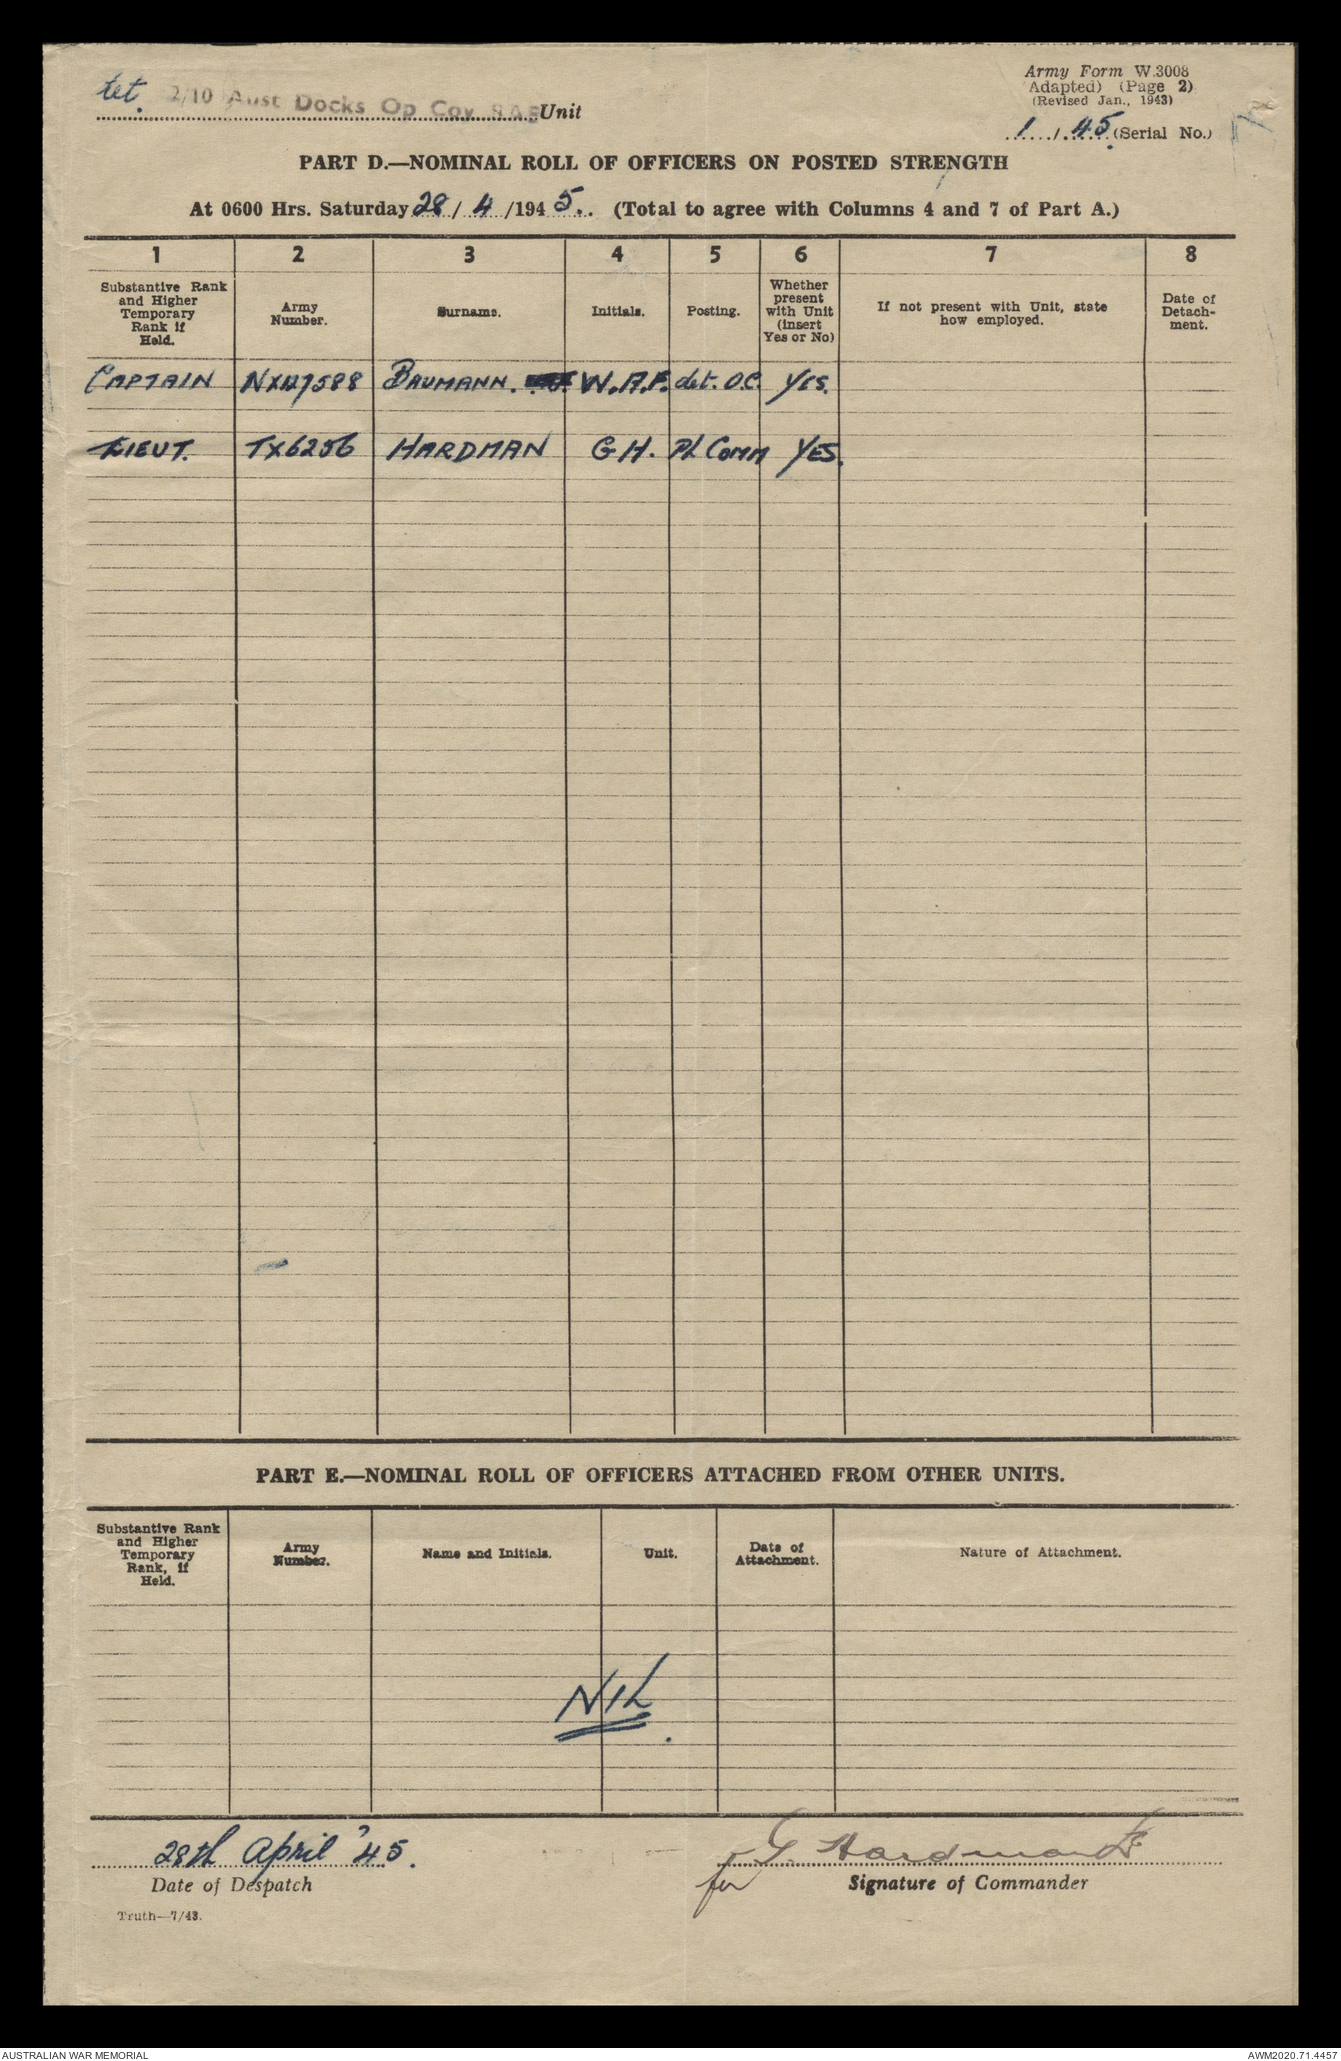 det. 2/10 Aust Docks Op Coy RAE Unit
Army Form W.3008
(Adapted) (Page 2)
(Revised Jan., 1943)
1/45 (Serial No.)
PART D.—NOMINAL ROLL OF OFFICERS ON POSTED STRENGTH
At 0600 Hrs. Saturday 28/4/1945.. (Total to agree with Columns 4 and 7 of Part A.)
1 2 3 4 5 6 7 8
Substantive Rank and Higher Temporary Rank if Held.
Army Number.
Surname.
Initials.
Posting.
Whether present with Unit (insert Yes or No)
If not present with Unit, state how employed.
Date of Detach-ment.
CAPTAIN BAUMANN. W.A.F. det. O.C. YES.
LIEUT. TX6256 HARDMAN G H. Pl Comm YES.
PART E.—NOMINAL ROLL OF OFFICERS ATTACHED FROM OTHER UNITS.
Substantive Rank and Higher Temporary Rank, if Held.
Army Number.
Name and Initials.
Unit.
Date of Attachment.
Nature of Attachment.
NIL.
28th April '45.
Date of Despatch
for G Hardman Lt
Signature of Commander
Truth—7/43.
AUSTRALIAN WAR MEMORIAL
AWM2020.71.4457